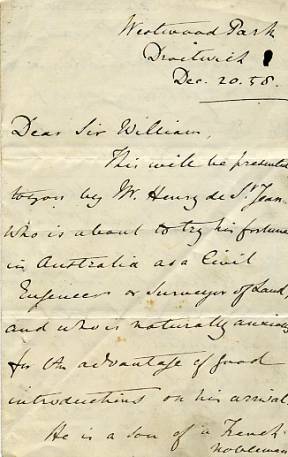 Westwood Park
Droitwich
Dec. 20. 58.
Dear Sir William,
This will be presented
to you by Mr. Henry de St. Jean
who is about to try his fortune
in Australia as a Civil
Engineer or Surveyor of Land,
and who is naturally anxious
for the advantage of good
introductions on his arrival.
He is a son of a French
nobleman